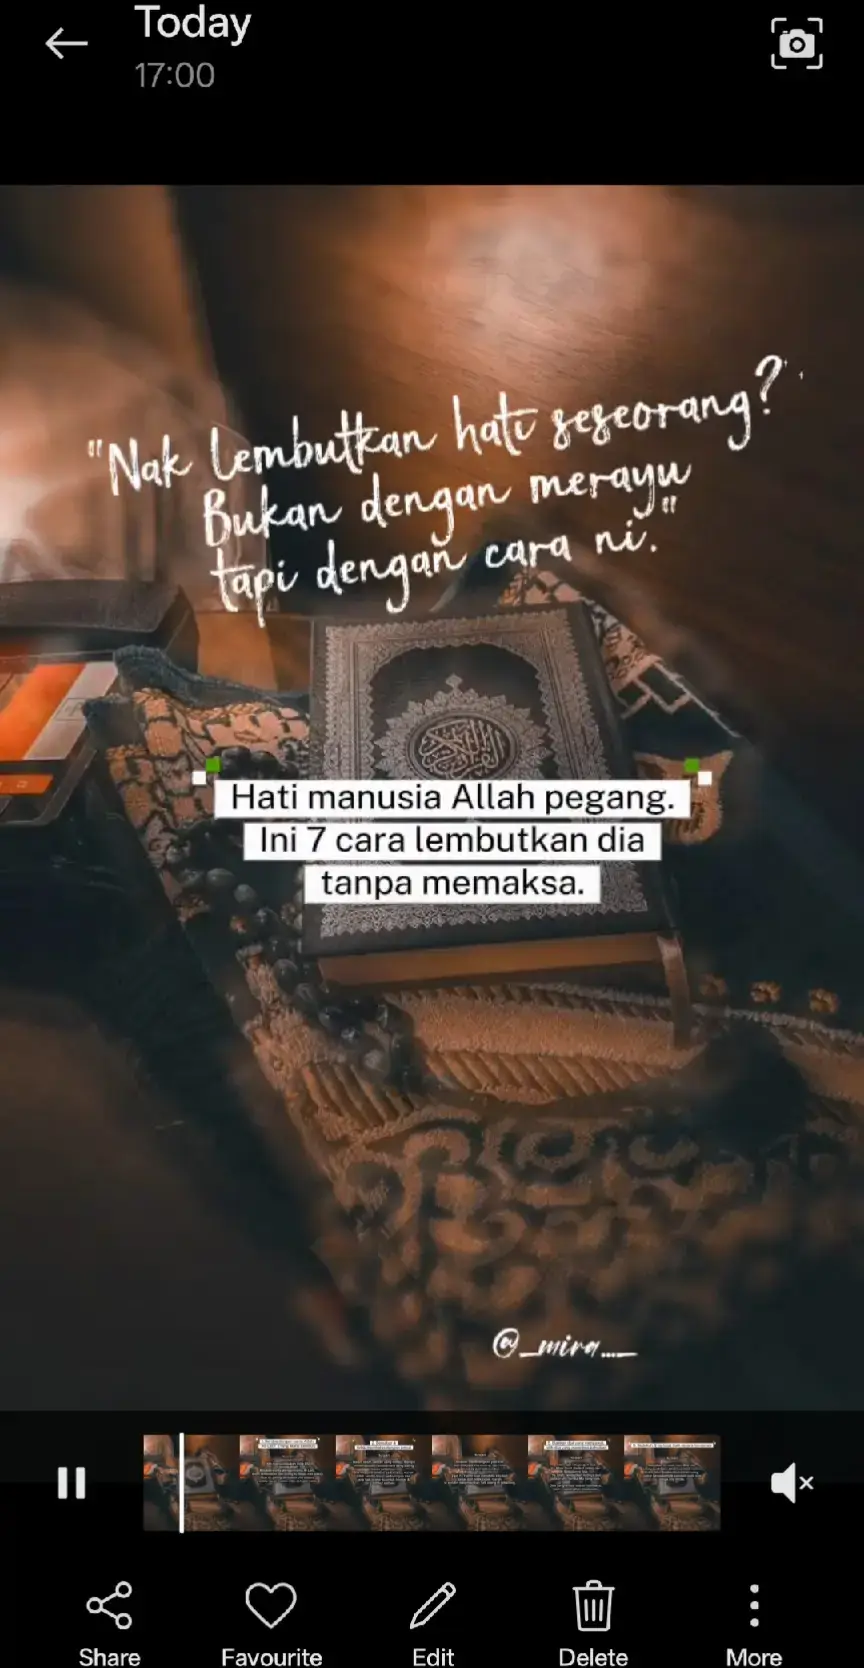 Today
17:00
"Nak lembutkan hati seseorang?
Bukan dengan merayu
tapi dengan cara ni."
Hati manusia Allah pegang.
Ini 7 cara lembutkan dia
tanpa memaksa.
@_mira...._
Share Favourite Edit Delete More